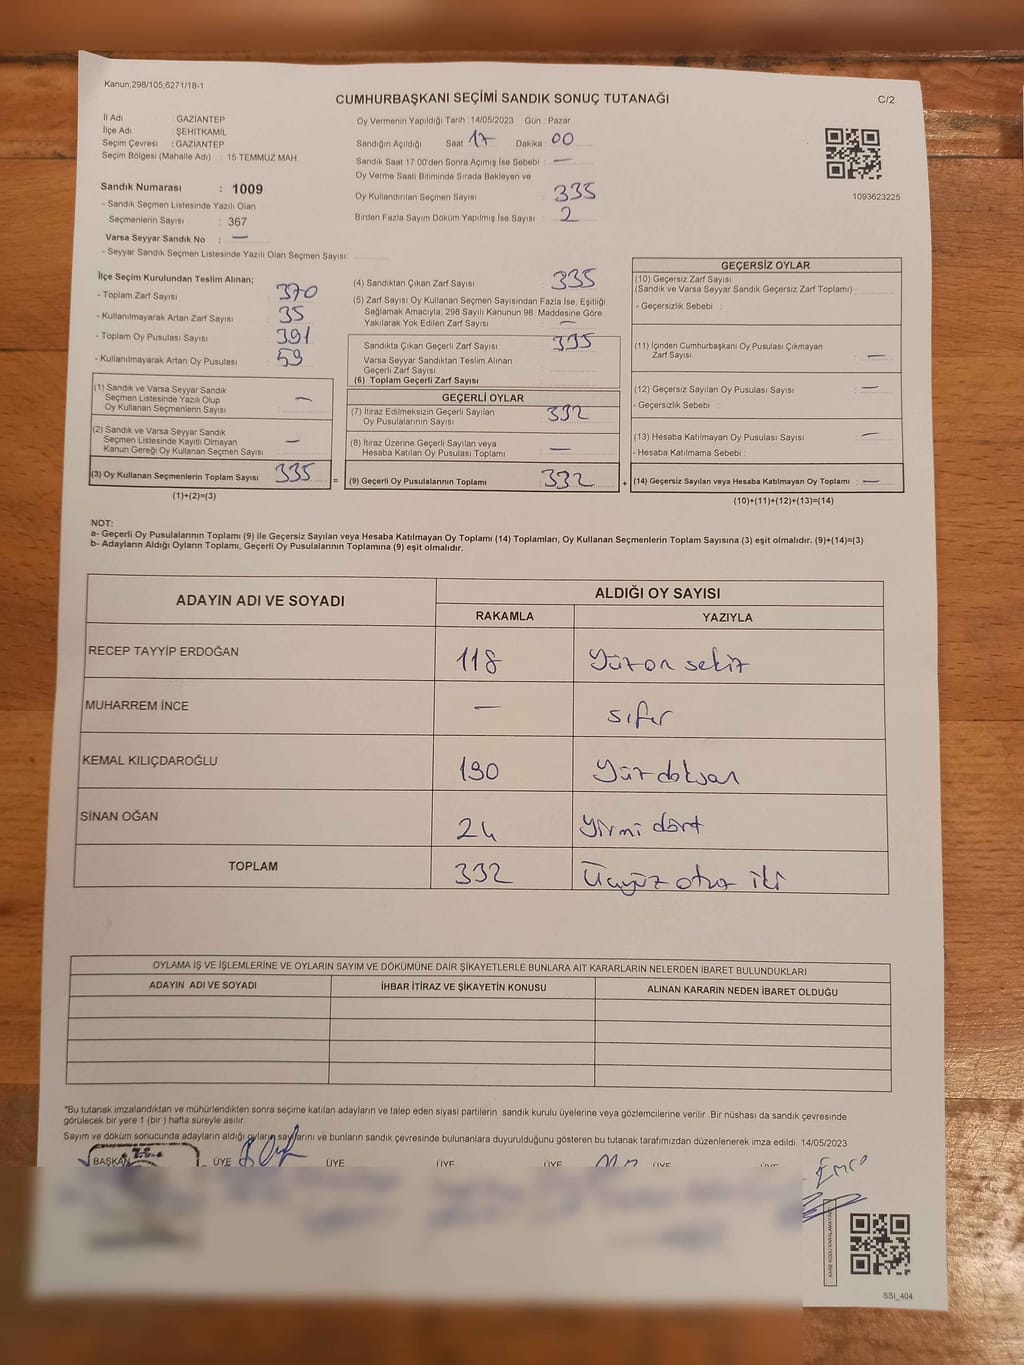 Kanun,298/105,6271/18-1
CUMHURBAŞKANI SEÇİMİ SANDIK SONUÇ TUTANAĞI
C/2
İl Adı : GAZİANTEP
İlçe Adı : ŞEHİTKAMİL
Seçim Çevresi : GAZİANTEP
Seçim Bölgesi (Mahalle Adı) : 15 TEMMUZ MAH.
Sandık Numarası : 1009
- Sandık Seçmen Listesinde Yazılı Olan
Seçmenlerin Sayısı : 367
Varsa Seyyar Sandık No : —
- Seyyar Sandık Seçmen Listesinde Yazılı Olan Seçmen Sayısı:
Oy Vermenin Yapıldığı Tarih : 14/05/2023 Gün : Pazar
Sandığın Açıldığı Saat 17 Dakika 00
Sandık Saat 17.00'den Sonra Açımış İse Sebebi : —
Oy Verme Saati Bitiminde Sırada Bekleyen ve
Oy Kullandırılan Seçmen Sayısı : 335
Birden Fazla Sayım Döküm Yapılmış İse Sayısı : 2
1093623225
İlçe Seçim Kurulundan Teslim Alınan;
- Toplam Zarf Sayısı 370
- Kullanılmayarak Artan Zarf Sayısı 35
- Toplam Oy Pusulası Sayısı 391
- Kullanılmayarak Artan Oy Pusulası 59
(1) Sandık ve Varsa Seyyar Sandık
Seçmen Listesinde Yazılı Olup
Oy Kullanan Seçmenlerin Sayısı —
(2) Sandık ve Varsa Seyyar Sandık
Seçmen Listesinde Kayıtlı Olmayan
Kanun Gereği Oy Kullanan Seçmen Sayısı —
(3) Oy Kullanan Seçmenlerin Toplam Sayısı 335
(1)+(2)=(3)
(4) Sandıktan Çıkan Zarf Sayısı 335
(5) Zarf Sayısı Oy Kullanan Seçmen Sayısından Fazla İse, Eşitliği
Sağlamak Amacıyla; 298 Sayılı Kanunun 98. Maddesine Göre
Yakılarak Yok Edilen Zarf Sayısı —
Sandıkta Çıkan Geçerli Zarf Sayısı 335
Varsa Seyyar Sandıktan Teslim Alınan
Geçerli Zarf Sayısı
(6) Toplam Geçerli Zarf Sayısı
GEÇERLİ OYLAR
(7) İtiraz Edilmeksizin Geçerli Sayılan
Oy Pusulalarının Sayısı 332
(8) İtiraz Üzerine Geçerli Sayılan veya
Hesaba Katılan Oy Pusulası Toplamı —
= (9) Geçerli Oy Pusulalarının Toplamı 332 +
GEÇERSİZ OYLAR
(10) Geçersiz Zarf Sayısı
(Sandık ve Varsa Seyyar Sandık Geçersiz Zarf Toplamı) :
- Geçersizlik Sebebi :
(11) İçinden Cumhurbaşkanı Oy Pusulası Çıkmayan
Zarf Sayısı —
(12) Geçersiz Sayılan Oy Pusulası Sayısı : —
- Geçersizlik Sebebi :
(13) Hesaba Katılmayan Oy Pusulası Sayısı : —
- Hesaba Katılmama Sebebi :
(14) Geçersiz Sayılan veya Hesaba Katılmayan Oy Toplamı : —
(10)+(11)+(12)+(13)=(14)
NOT:
a- Geçerli Oy Pusulalarının Toplamı (9) ile Geçersiz Sayılan veya Hesaba Katılmayan Oy Toplamı (14) Toplamları, Oy Kullanan Seçmenlerin Toplam Sayısına (3) eşit olmalıdır. (9)+(14)=(3)
b- Adayların Aldığı Oyların Toplamı, Geçerli Oy Pusulalarının Toplamına (9) eşit olmalıdır.
ADAYIN ADI VE SOYADI
ALDIĞI OY SAYISI
RAKAMLA YAZIYLA
RECEP TAYYİP ERDOĞAN 118 Yüzon sekiz
MUHARREM İNCE — sıfır
KEMAL KILIÇDAROĞLU 190 Yüz doksan
SİNAN OĞAN 24 Yirmi dört
TOPLAM 332 Üçyüz otuz iki
OYLAMA İŞ VE İŞLEMLERİNE VE OYLARIN SAYIM VE DÖKÜMÜNE DAİR ŞİKAYETLERLE BUNLARA AİT KARARLARIN NELERDEN İBARET BULUNDUKLARI
ADAYIN ADI VE SOYADI İHBAR İTİRAZ VE ŞİKAYETİN KONUSU ALINAN KARARIN NEDEN İBARET OLDUĞU
*Bu tutanak imzalandıktan ve mühürlendikten sonra seçime katılan adayların ve talep eden siyasi partilerin sandık kurulu üyelerine veya gözlemcilerine verilir. Bir nüshası da sandık çevresinde
görülecek bir yere 1 (bir ) hafta süreyle asılır.
Sayım ve döküm sonucunda adayların aldığı oyların sayılarını ve bunların sandık çevresinde bulunanlara duyurulduğunu gösteren bu tutanak tarafımızdan düzenlenerek imza edildi. 14/05/2023
BAŞKAN ÜYE ÜYE ÜYE ÜYE ÜYE ÜYE
SSI_404